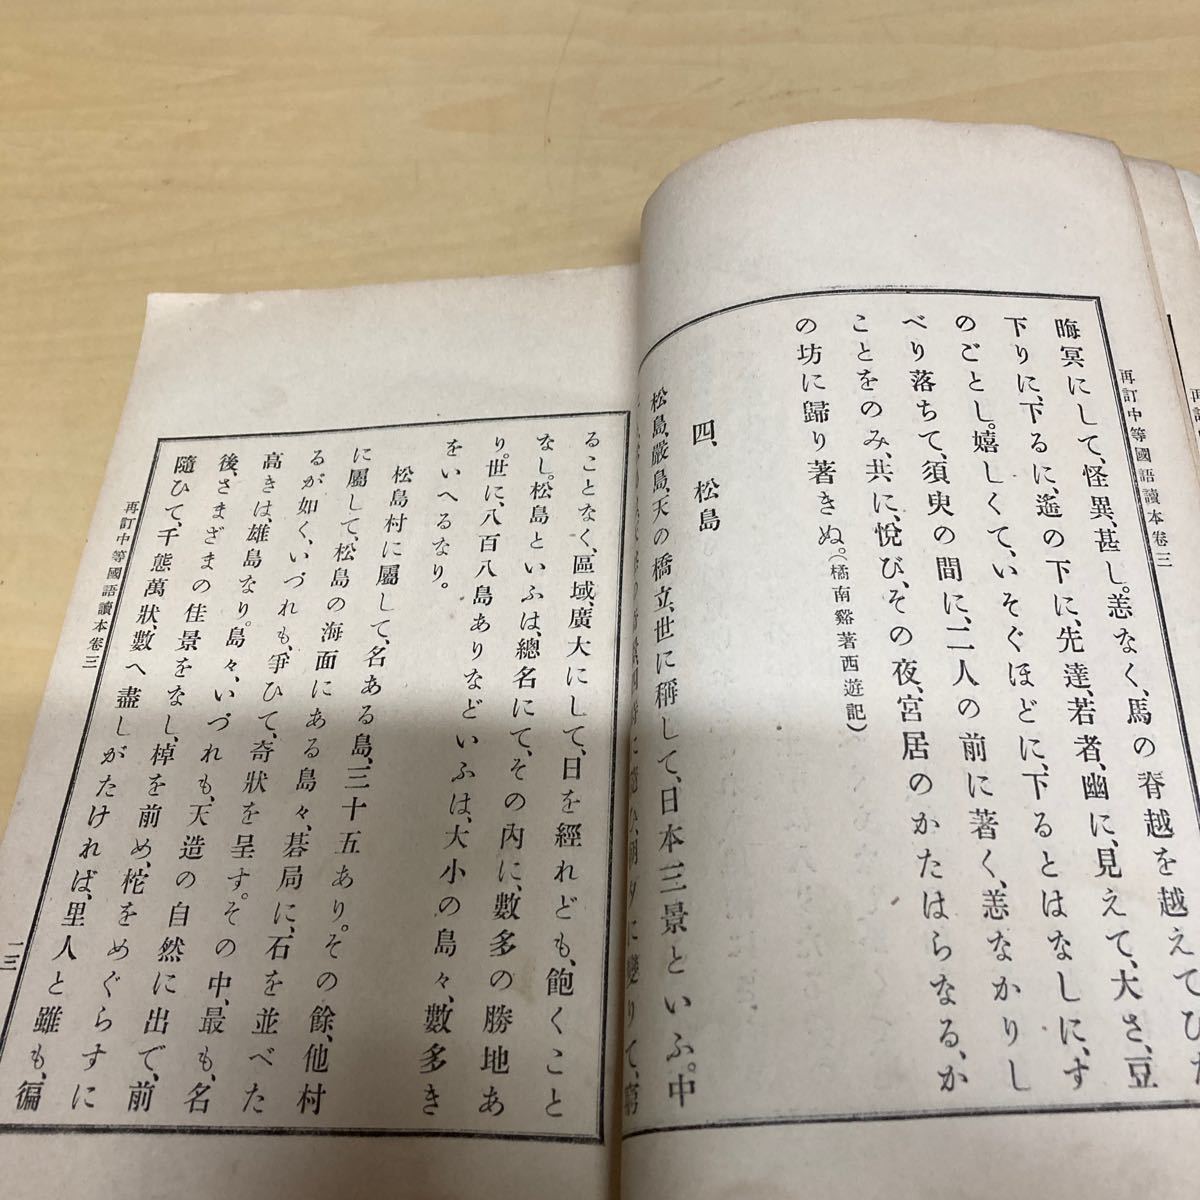 再訂中等國語讀本卷三
晦冥にして、怪異、甚し。恙なく、馬の脊越を越えてひた
下りに、下るに、遙の下に、先達、若者、幽に、見えて、大さ、豆
のごとし。嬉しくて、いそぐほどに、下るとはなしに、す
べり落ちて、須臾の間に、二人の前に著く、恙なかりし
ことをのみ、共に、悅び、その夜、宮居のかたはらなる、か
の坊に歸り著きぬ。(橘南谿著西遊記)
四、松島
松島、嚴島、天の橋立、世に稱して、日本三景といふ。中
ることなく、區域、廣大にして、日を經れども、飽くこと
なし。松島といふは、總名にて、その內に、數多の勝地あ
り。世に、八百八島ありなどいふは、大小の島々、數多き
をいへるなり。
松島村に屬して、名ある島、三十五あり。その餘、他村
に屬して、松島の海面にある島々、碁局に、石を並べた
るが如く、いづれも、爭ひて、奇狀を呈す。その中、最も、名
高きは、雄島なり。島々、いづれも、天造の自然に出で、前
後、さまざまの佳景をなし、棹を前め、柁をめぐらすに
隨ひて、千態萬狀、數へ盡しがたければ、里人と雖も、徧
再訂中等國語讀本卷三
一三